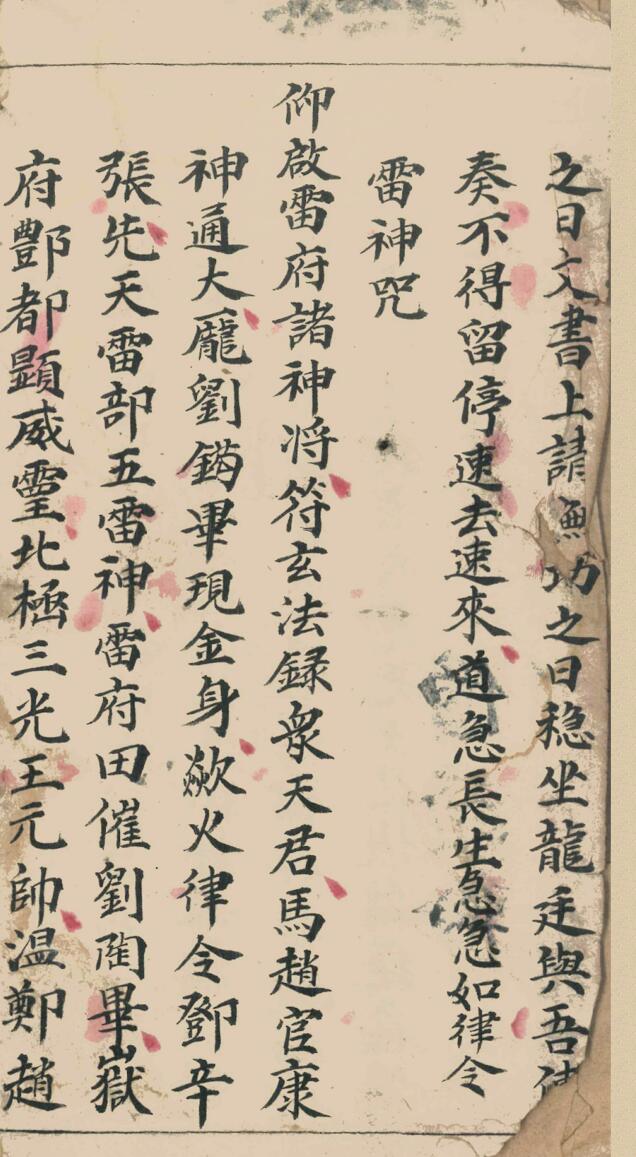 之日文書上請無功之日穏坐龍廷與吾
奏不得留停速去速來道急長生急急如律令
雷神咒
仰啟雷府諸神将符玄法録衆天君馬趙官康
神通大龐劉鍧畢現金身歘火律令鄧辛
張先天雷部五雷神雷府田催劉陶畢嶽
府酆都顕威霊北極三光王元帥温鄭趙